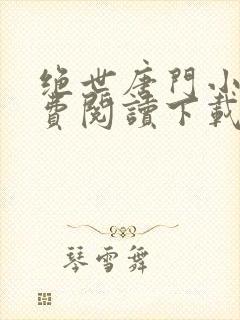 绝世唐門小
費閱讀下載
琴雪舞